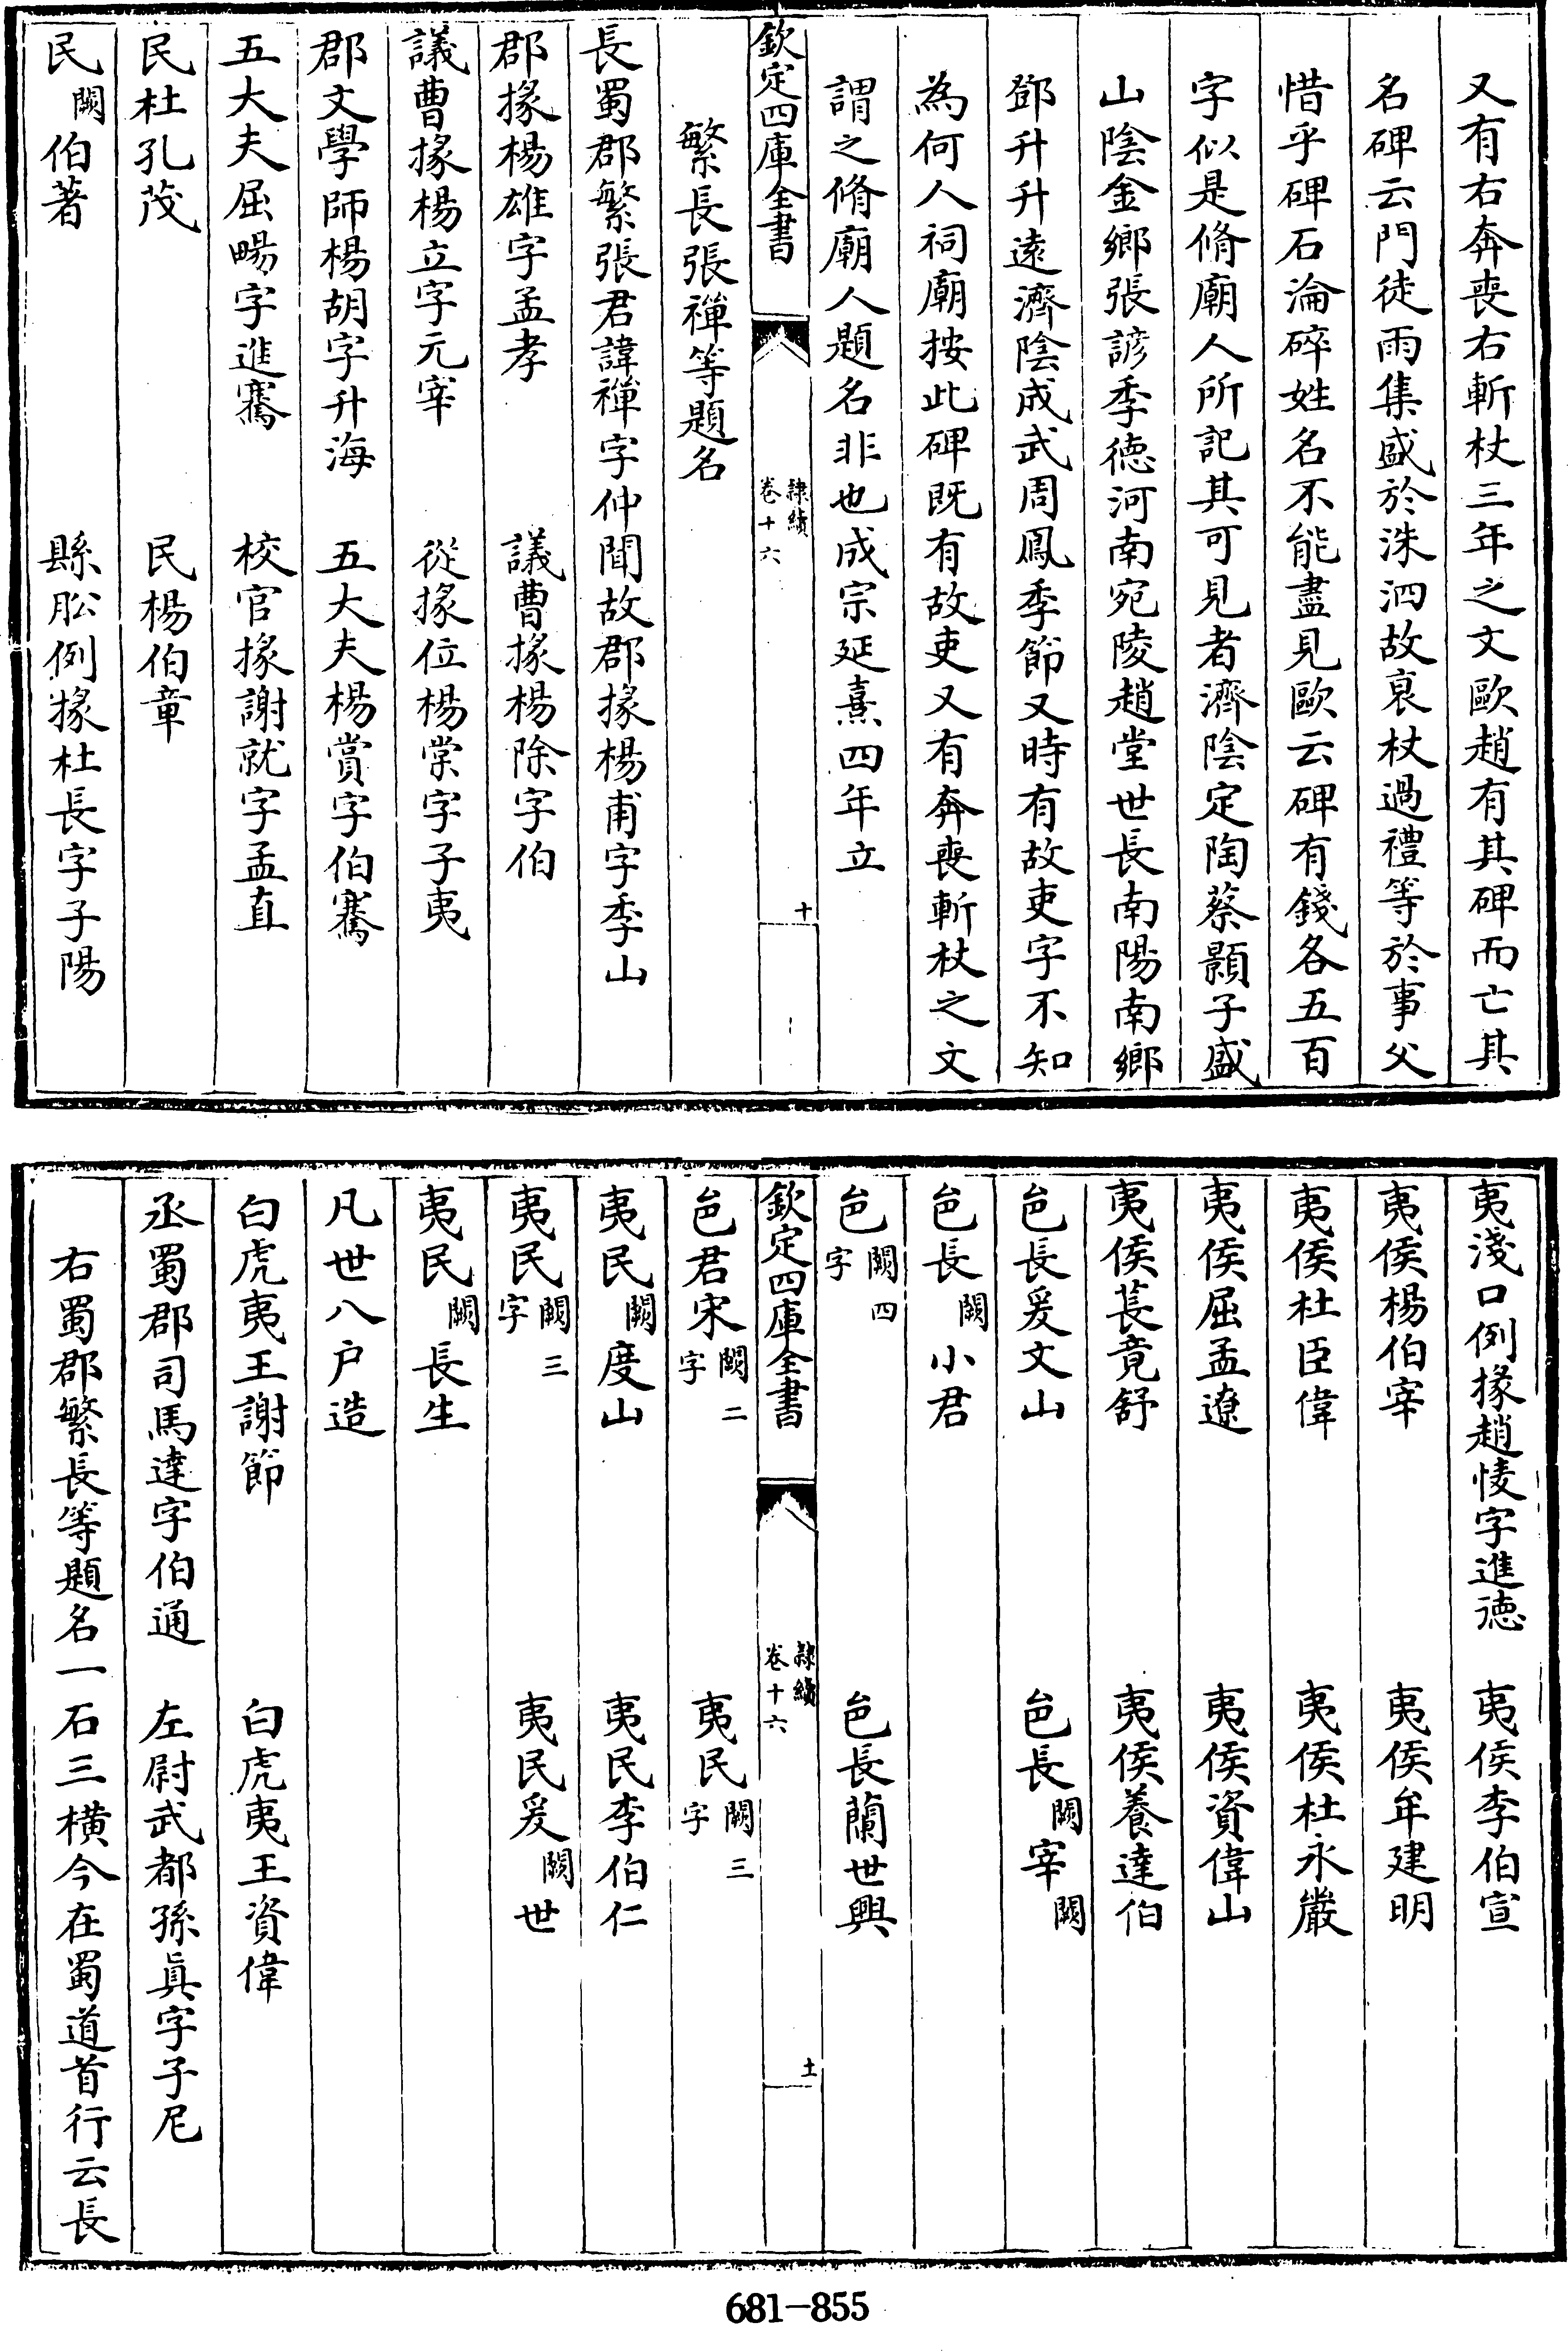 又有右奔喪右斬杖三年之文歐趙有其碑而亡其
名碑云門徒雨集盛於洙泗故㐮杖過禮等於事父
惜乎碑石淪碎姓名不能盡見歐云碑有錢各五百
字似是脩廟人所記其可見者濟陰定陶蔡顥子盛
山陰金鄉張諺季徳河南宛陵趙堂世長南陽南鄉
鄧升升遠濟陰成武周鳳季節又時有故吏字不知
為何人祠廟按此碑既有故吏又有奔喪斬杖之文
謂之脩廟人題名非也成宗延熹四年立
欽定四庫全書 隸續 卷十六 十
繁長張禪等題名
長蜀郡繁張君諱禪字仲聞故郡掾楊甫字季山
郡掾楊雄字孟孝 議曹掾楊除字伯
議曹掾楊立字元宰 從掾位楊棠字子夷
郡文學師楊胡字升海 五大夫楊賞字伯騫
五大夫屈暘字進騫 校官掾謝就字孟直
民杜孔茂 民楊伯章
民闕伯著 縣舩例掾杜長字子陽
夷淺口例掾趙悽字進徳 夷侯李伯宣
夷侯楊伯宰 夷侯牟建明
夷侯杜臣偉 夷侯杜永嚴
夷侯屈孟遼 夷侯資偉山
夷侯萇竟舒 夷侯養達伯
邑長爰文山 邑長闕宰闕
邑長闕小君
邑闕四字 邑長蘭世興
欽定四庫全書 隸續 卷十六 十一
邑君宋闕二字 夷民闕三字
夷民闕度山 夷民李伯仁
夷民闕三字 夷民爰闕世
夷民闕長生
凡世八户造
白虎夷王謝節 白虎夷王資偉
丞蜀郡司馬達字伯通 左尉武都孫真字子尼
右蜀郡繁長等題名一石三横今在蜀道首行云長
681-855